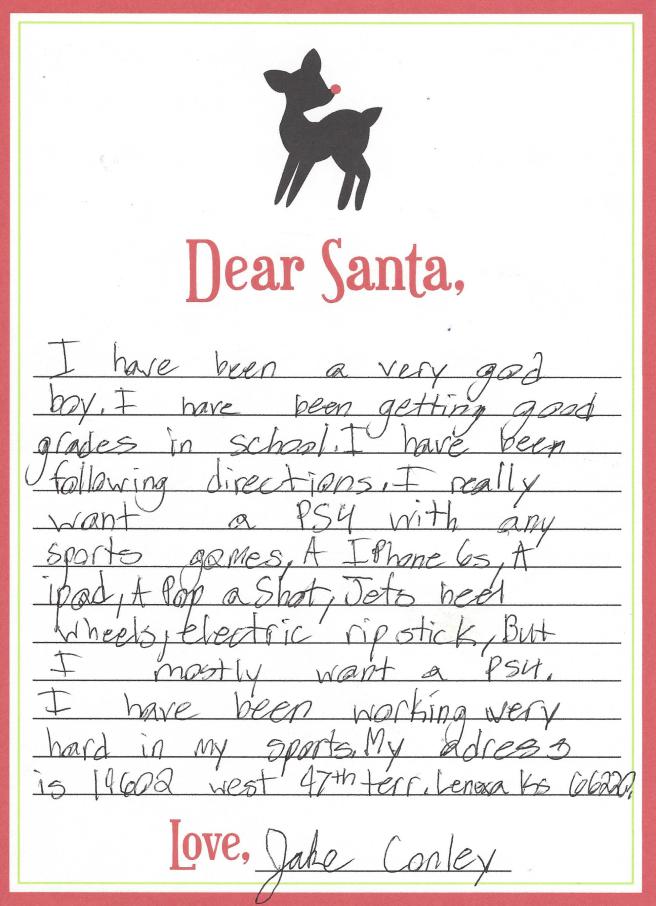 Dear Santa,
I have been a very good
boy. I have been getting good
grades in school. I have been
following directions. I really
want a PS4 with any
sports games, A IPhone 6s, A
ipad, A Pop a Shot, Jets heel
wheels, electric rip stick, But
I mostly want a PS4.
I have been working very
hard in my sports. My adress
is 19602 west 47th terr. Lenexa Ks 66220.
Love, Jake Conley